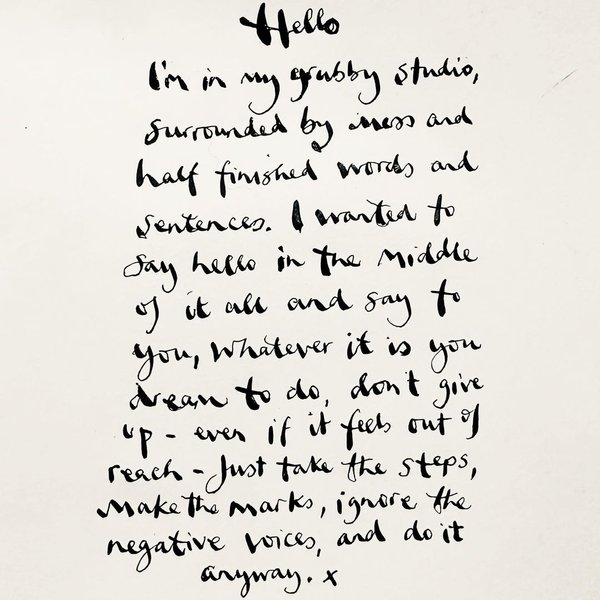 Hello
I'm in my grubby studio,
surrounded by mess and
half finished words and
sentences. I wanted to
say hello in the middle
of it all and say to
you, whatever it is you
dream to do, don't give
up - even if it feels out of
reach - Just take the steps,
Make the marks, ignore the
negative voices, and do it
anyway. x